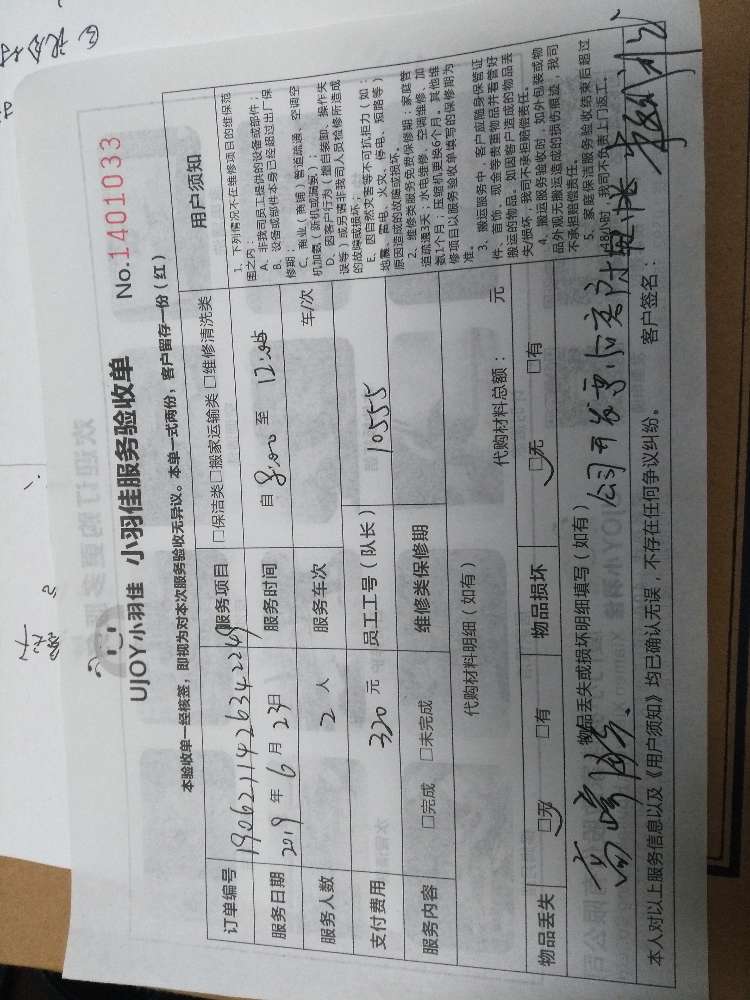 UJOY小羽佳 小羽佳服务验收单 No:1401033
本验收单一经核签，即视为对本次服务验收无异议。本单一式两份，客户留存一份（红）
订单编号 190621142634224 服务项目 □保洁类□搬家运输类 □维修清洗类
服务日期 2019 年 6 月 23日 服务时间 自 8:00 至 12:00
服务人数 2 人 服务车次 车/次
支付费用 320 元 员工工号（队长） 10555
服务内容 □完成 □未完成 维修类保修期
代购材料明细（如有） 代购材料总额： 元
物品丢失 □无 □有 物品损坏 □无 □有
物品丢失或损坏明细填写（如有）
公司开发票
本人对以上服务信息以及《用户须知》均已确认无误，不存在任何争议纠纷。 客户签名：
用户须知
1、下列情况不在维修项目的维保范
围之内：
A、非我司员工提供的设备或部件；
B、设备或部件本身已经超过出厂保
修期；
C、商业（商铺）管道疏通、空调空
机加氨（新机或漏氨）；
D、因客户行为（擅自装卸、操作失
误等）或另请非我司人员检修所造成
的故障或损坏；
E、因自然灾害等不可抗拒力（如：
地震、雷电、火灾、停电、短路等）
原因造成的故障或损坏。
2、维修类服务免费保修期：家庭管
道疏通3天；水电维修、空调维修、加
氨1个月；压缩机更换6个月。其他维
修项目以服务验收单填写的保修期为
准。
3、搬运服务中，客户应随身保管证
件、首饰、现金等贵重物品并看管好
搬运的物品。如因客户造成的物品丢
失/损坏，我司不承担赔偿责任。
4、搬运服务验收时，如外包装或物
品外观无搬运造成的损伤痕迹，我司
不承担赔偿责任。
5、家庭保洁服务验收结束后超过
48小时，我司不负责上门返工。